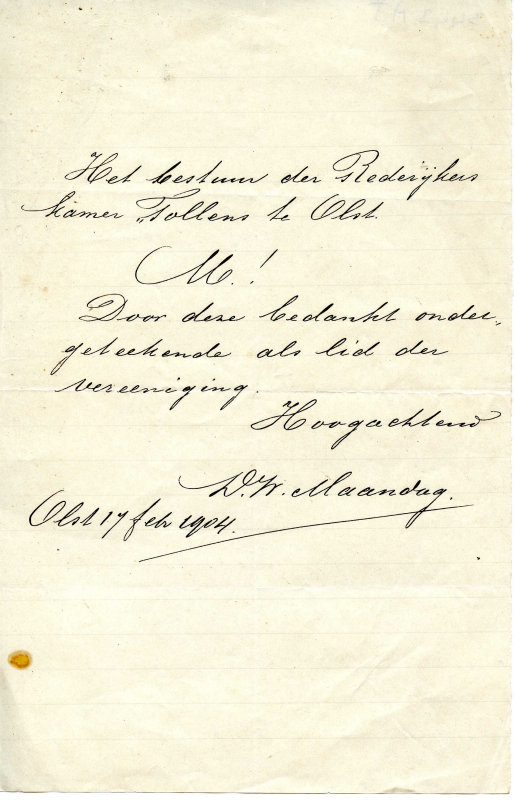 Het bestuur der Rederijkers
kamer „Tollens te Olst.
M.!
Door deze bedankt onder„
geteekende als lid der
vereeniging.
Hoogachtend
D.W. Maandag.
Olst 17 feb 1904.